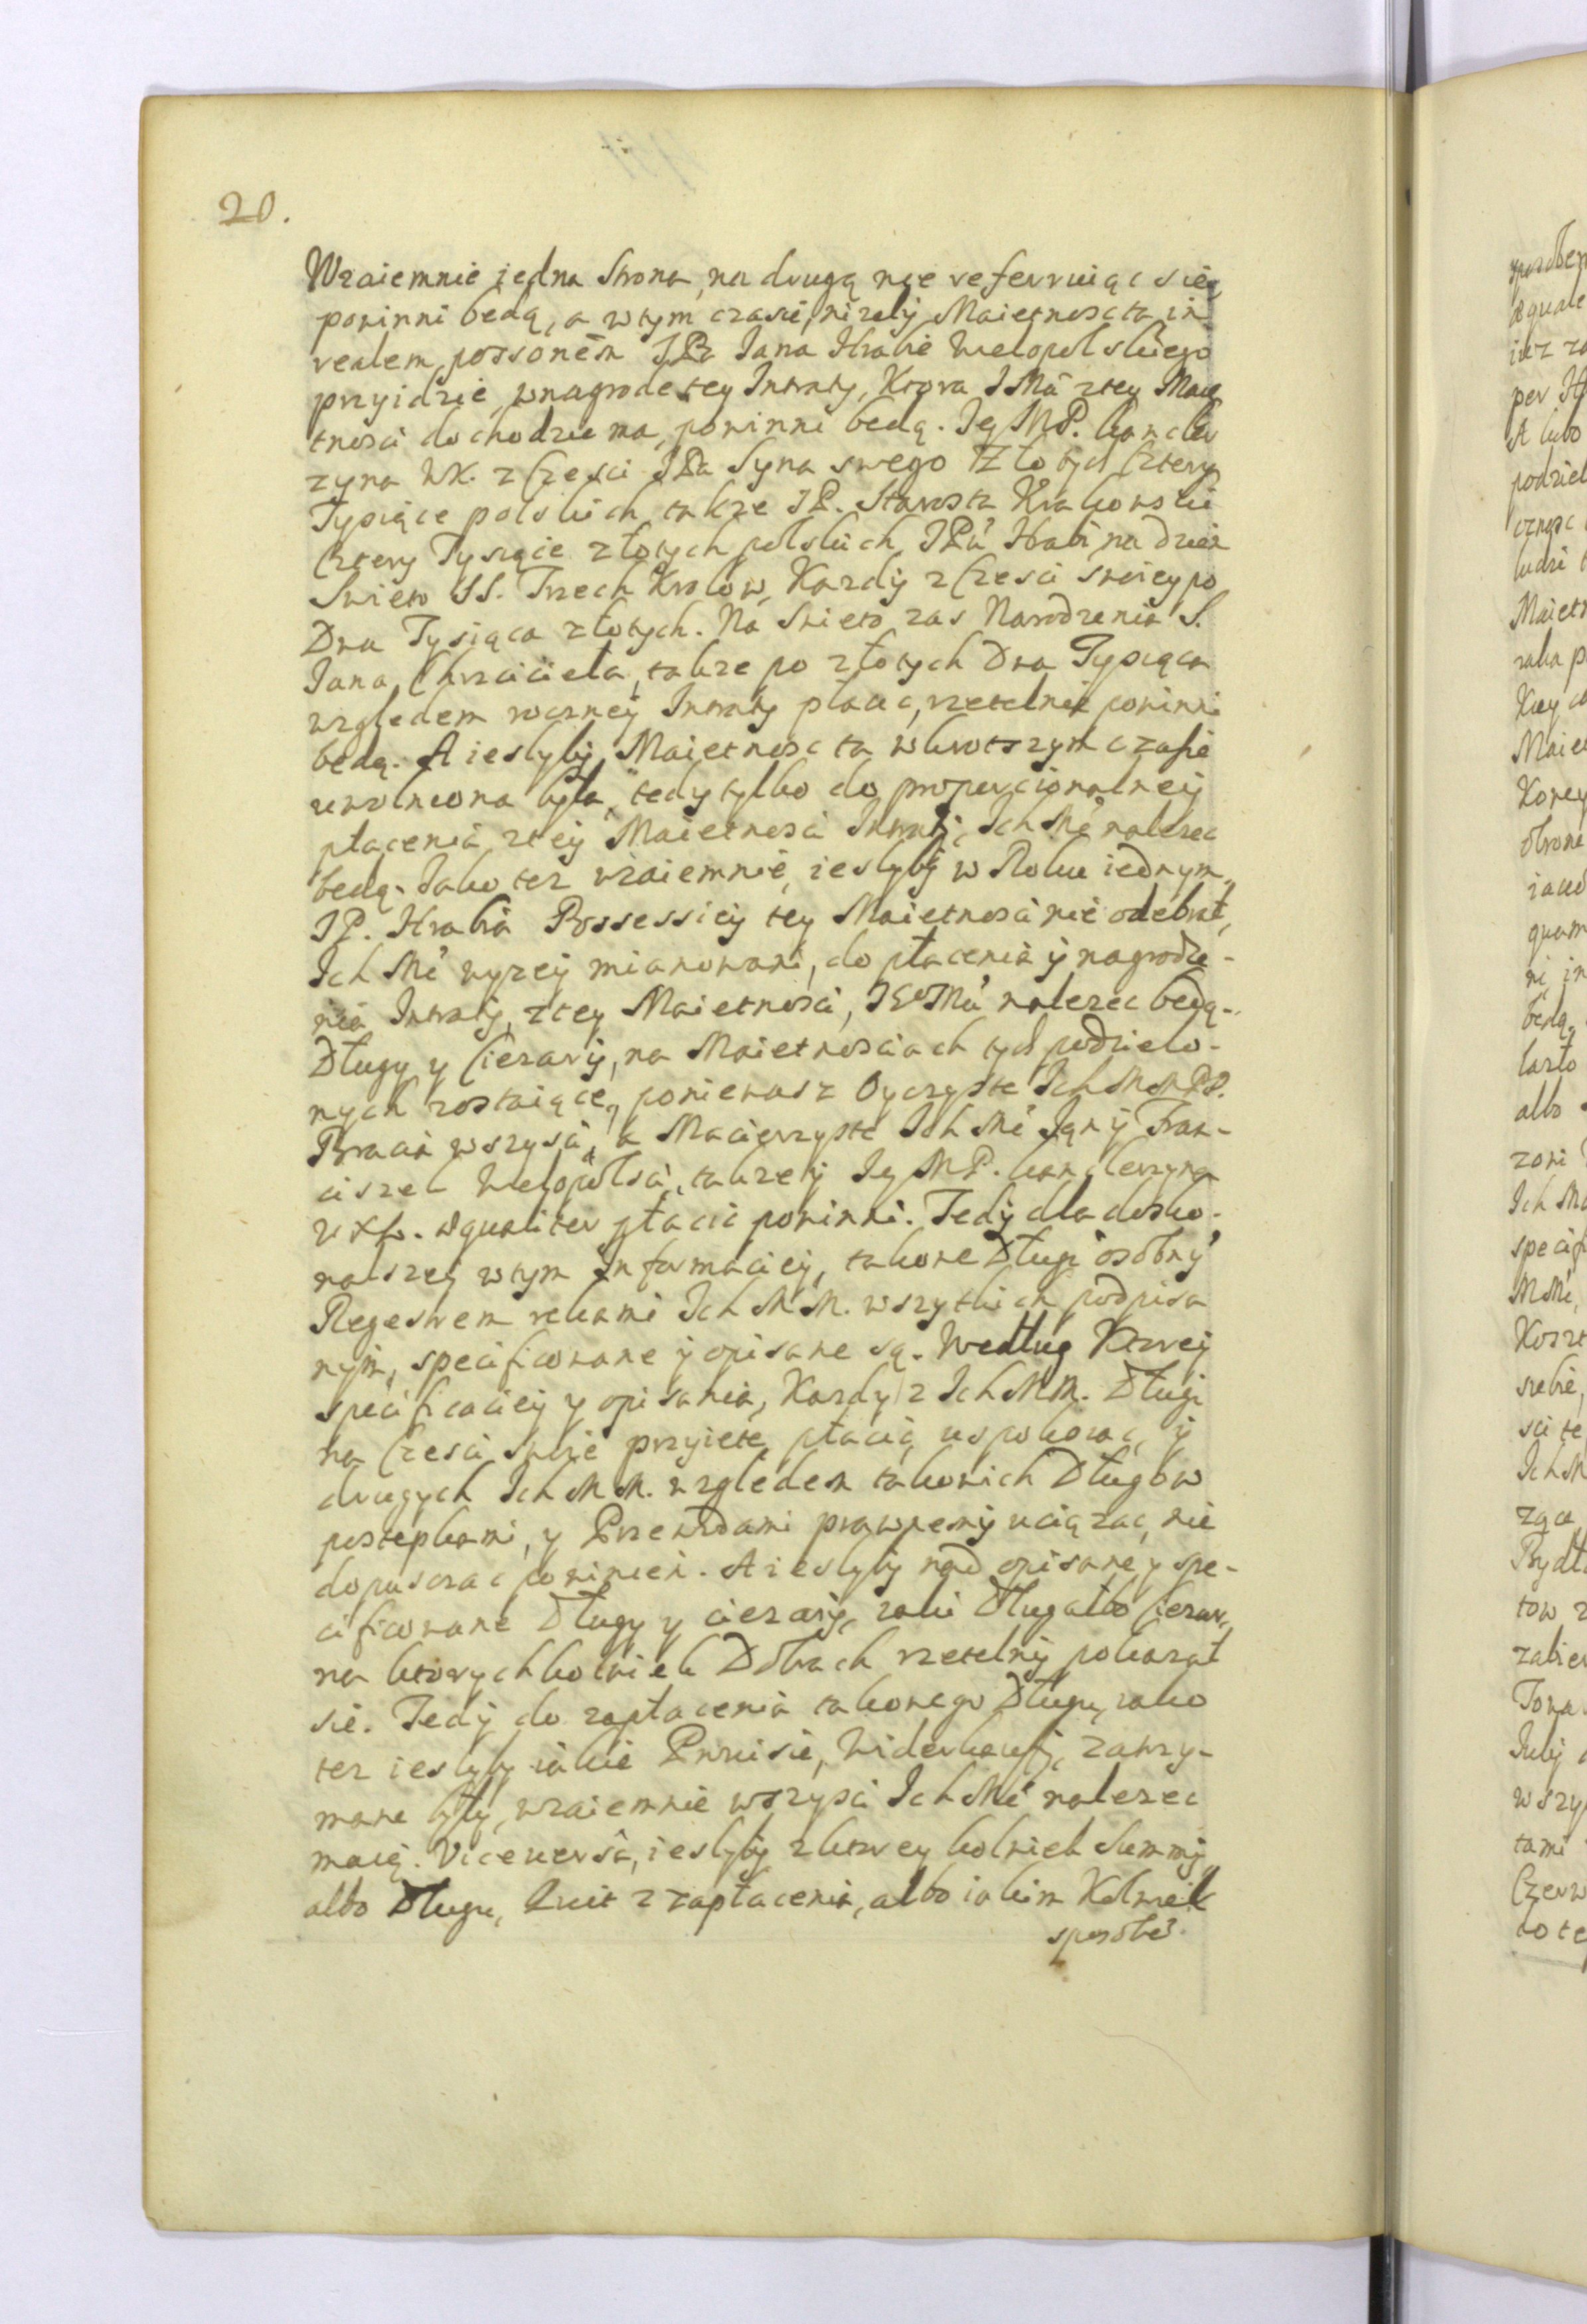 20.
Wzaiemnie iedna Strona, na drugą nie referruiąc się,
powinni będą, a wtym czasie, nizely Maietnosc ta in
realem possonem JPa Jana Hrabie Wielopolskiego
przyidzie, wnagrode tey Intraty, Ktora JMċ ztey Maię
tnosci dochodzic ma, powinni będą. Jey MP. Kancler
zyna WK. z Częsci JPa Syna swego Złotych Cztery
Tysiące polskich, takze JP. Starosta Krakowski
Cztery Tysiące złotych polskich JPu Hrabi na dzien
Swięto SS. Trzech Krolow, Kazdy z Częsci swoiey po
Dwa Tysiąca złotych. Na Swięto zas Narodzenia S.
Jana Chrzciciela, takze po złotych Dwa Tysiąca
względem roczney Intraty płacic, rzetelnie powinni
będą. A ieslyby Maietnosc ta wkrotszym czasie
uwolniona była, tedy tylko do proporcionalney
płacenia ztey Maietnosci Intraty, Ich Mć nalezec
będą. Jako tez wzaiemnie, ieslyby w Roku iednym,
JP. Hrabia Possessiey tey Maietnosci nie odebrał,
Ich Mć wyzey mianowani, do płacenia y nagrodze-
nia Intraty, ztey Maietnosci, JEoMci nalezec będą.
Długy y Cięzary, na Maietnosciach tych podzielo-
nych zostaiące, poniewasz Oyczyste Ich MMPP.
Bracia wszysci, a Macierzyste Ich Mć Jan y Fran-
ciszek Wielopolsci, takzey Jey MP. Kanclerzyna
WK. æqualiter płacic powinni. Tedy dla dosko-
nalszey wtym Informaciey, takowe Długi osobny
Regestrem rekami Ich MM. wszytkich podpisa
nym, specificowane y opisane są. Według Ktorey
specificaciey y opisania, Kazdy z Ich MM. Długi
na Częsci swoie przyięte płacic, uspokoiac, y
drugych Ich MM. względem takowich Długow
postępkami, y Przewodami prawnemy uciązac, nie
dopuszczac powinien. A ieslyby nad opisane y spe-
cificowane Długy y cięzary, iaki Dług albo Cięzar,
na ktorychkolwiek Dobrach rzetelny pokazał
się. Tedy do zapłacenia takowego Długu, iako
tez ieslyby iakie Prowisie, Widerkaufy, zatrzy-
mane były, wzaiemnie wszysci Ich Mć nalezec
maią. Viceversa, ieslyby zktorey kolwiek Summy
albo Długu, Kwit z zapłacenia, albo iakim Kolwiek
sposobē.